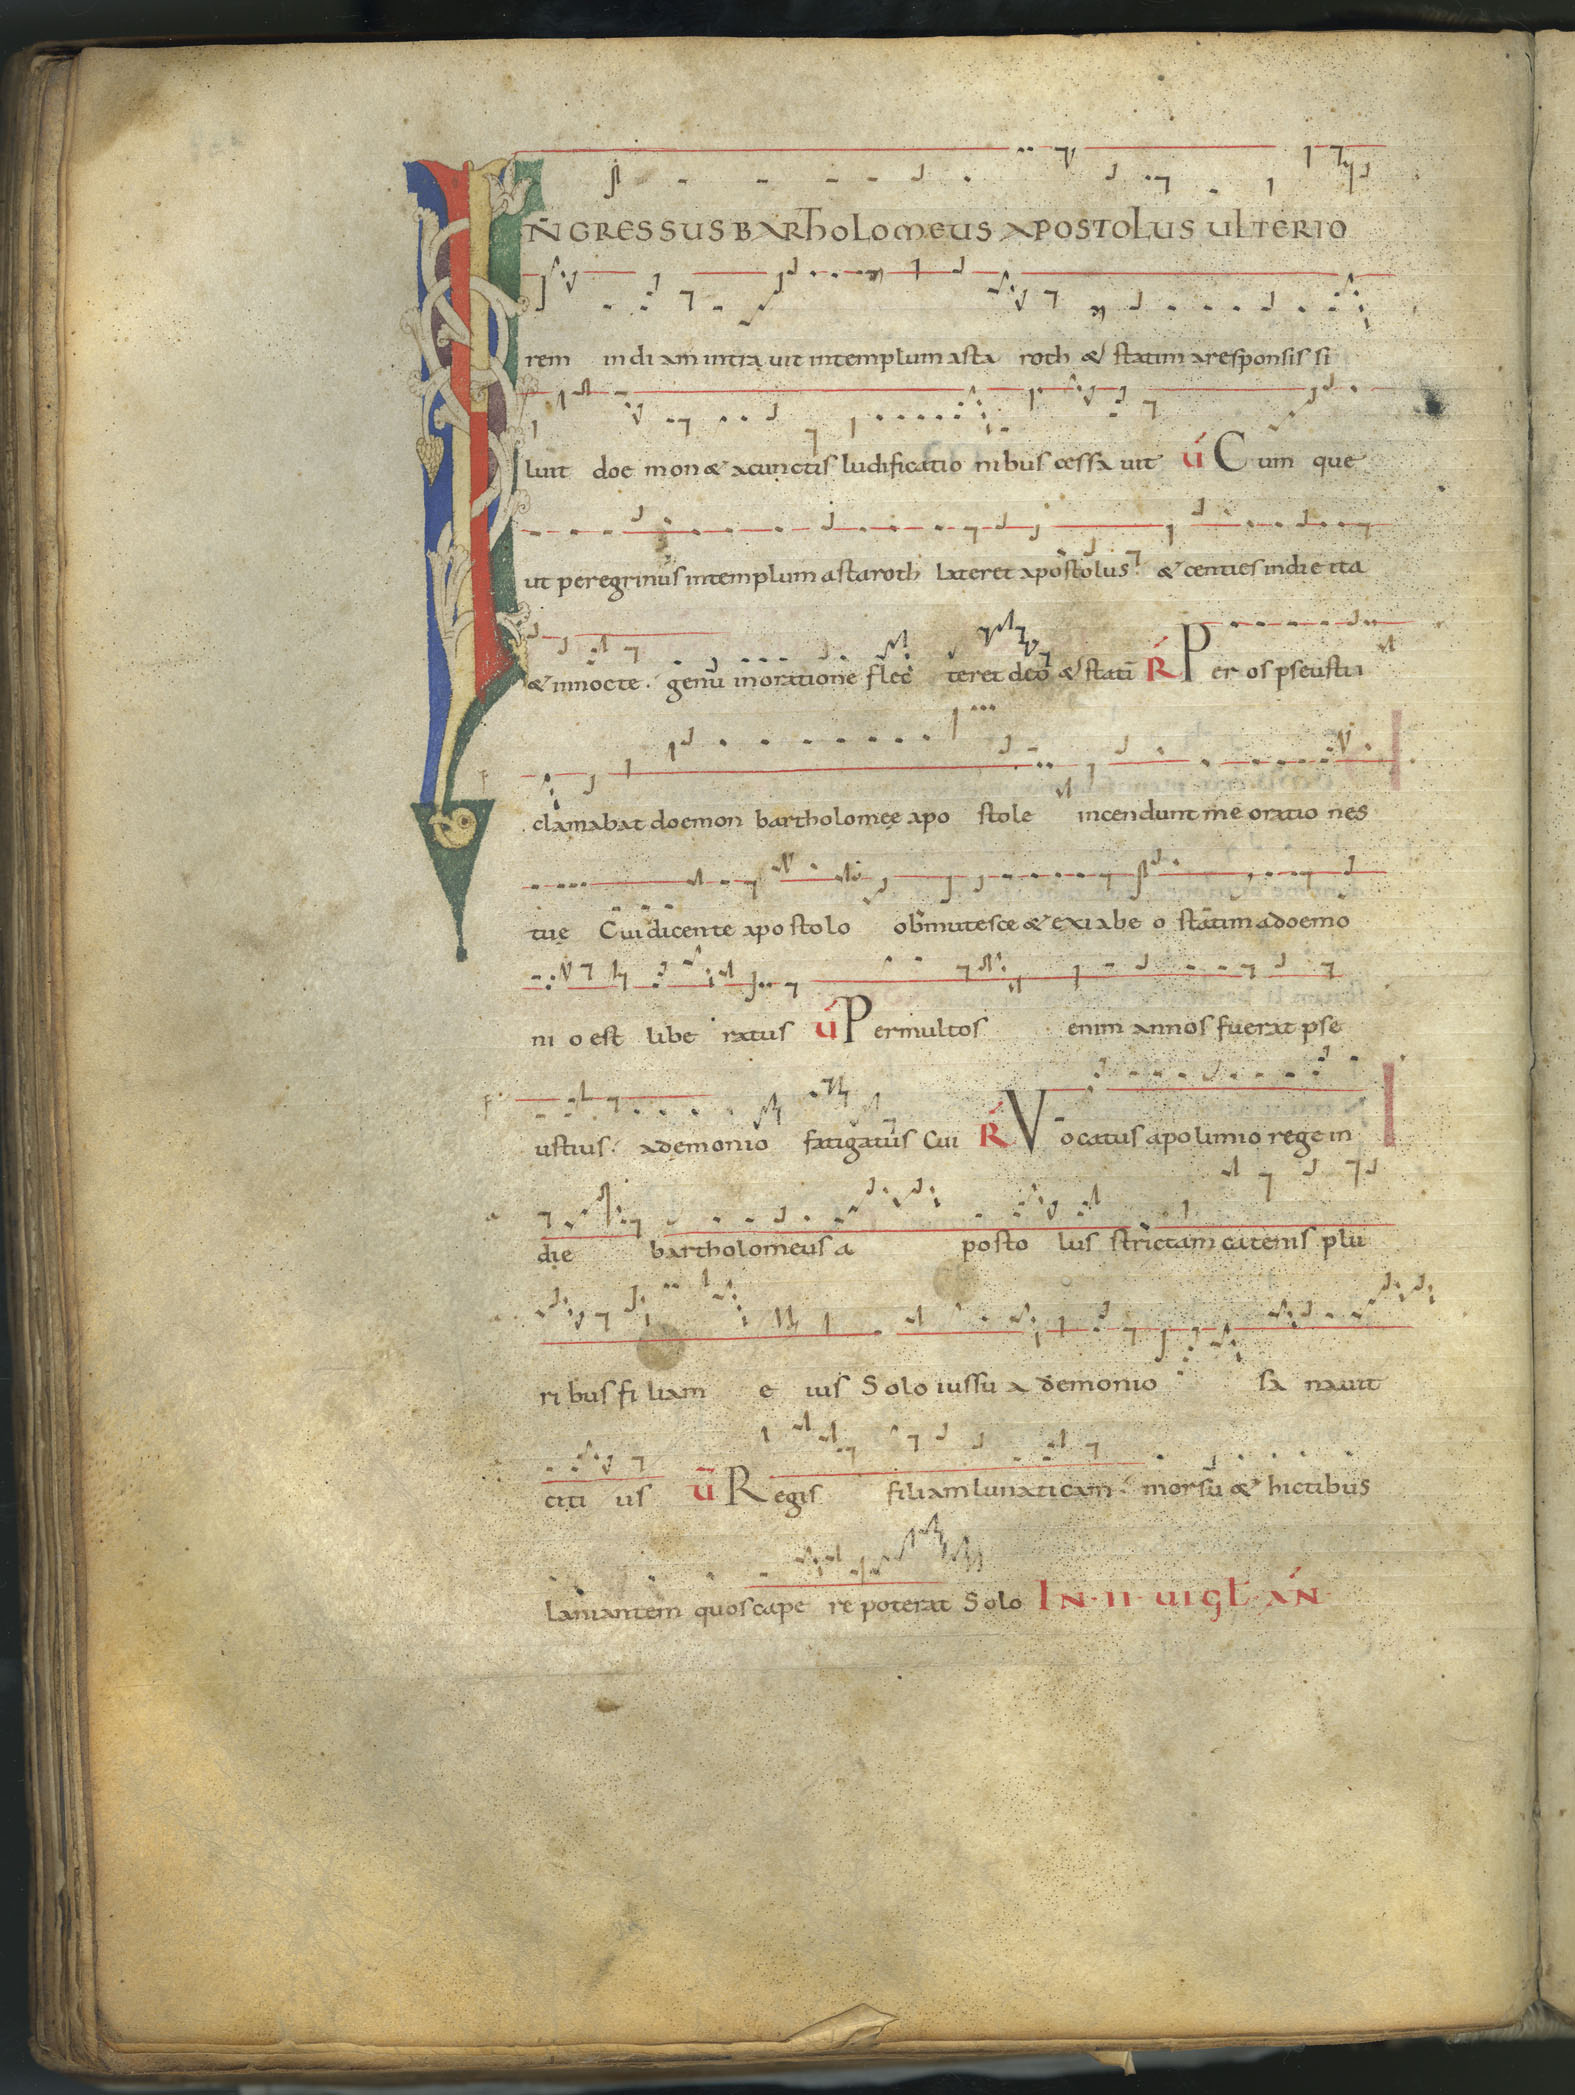 INGRESSUS BARTHOLOMEUS APOSTOLUS ULTERIO
rem indiam intra uit in templum asta roth & statim a responsis si
luit doe mon & a cunctis ludificatio nibus cessa uit V́ Cum que
ut peregrinus in templum astaroth lateret apostolus & centies in die ita
& in nocte. genu in oratione flec teret deo & stati R̃ Per os pseustii
clamabat doemon bartholomeę apo stole incendunt me oratio nes
tuę Cui dicente apostolo obmutesce & exi ab e o statim a doemo
ni o est libe ratus V́ Per multos enim annos fuerat pse
ustius. a demonio fatigatus Cui R̃ Vocatus a polimio rege in
die bartholomeus a posto lus strictam catenis plu
ribus filiam e ius Solo iussu a demonio sa nauit
citi us V̄ Regis filiam lunaticam. morsu & hictibus
laniantem quos cape re poterat Solo IN · II · UIGL̄ · AŃ